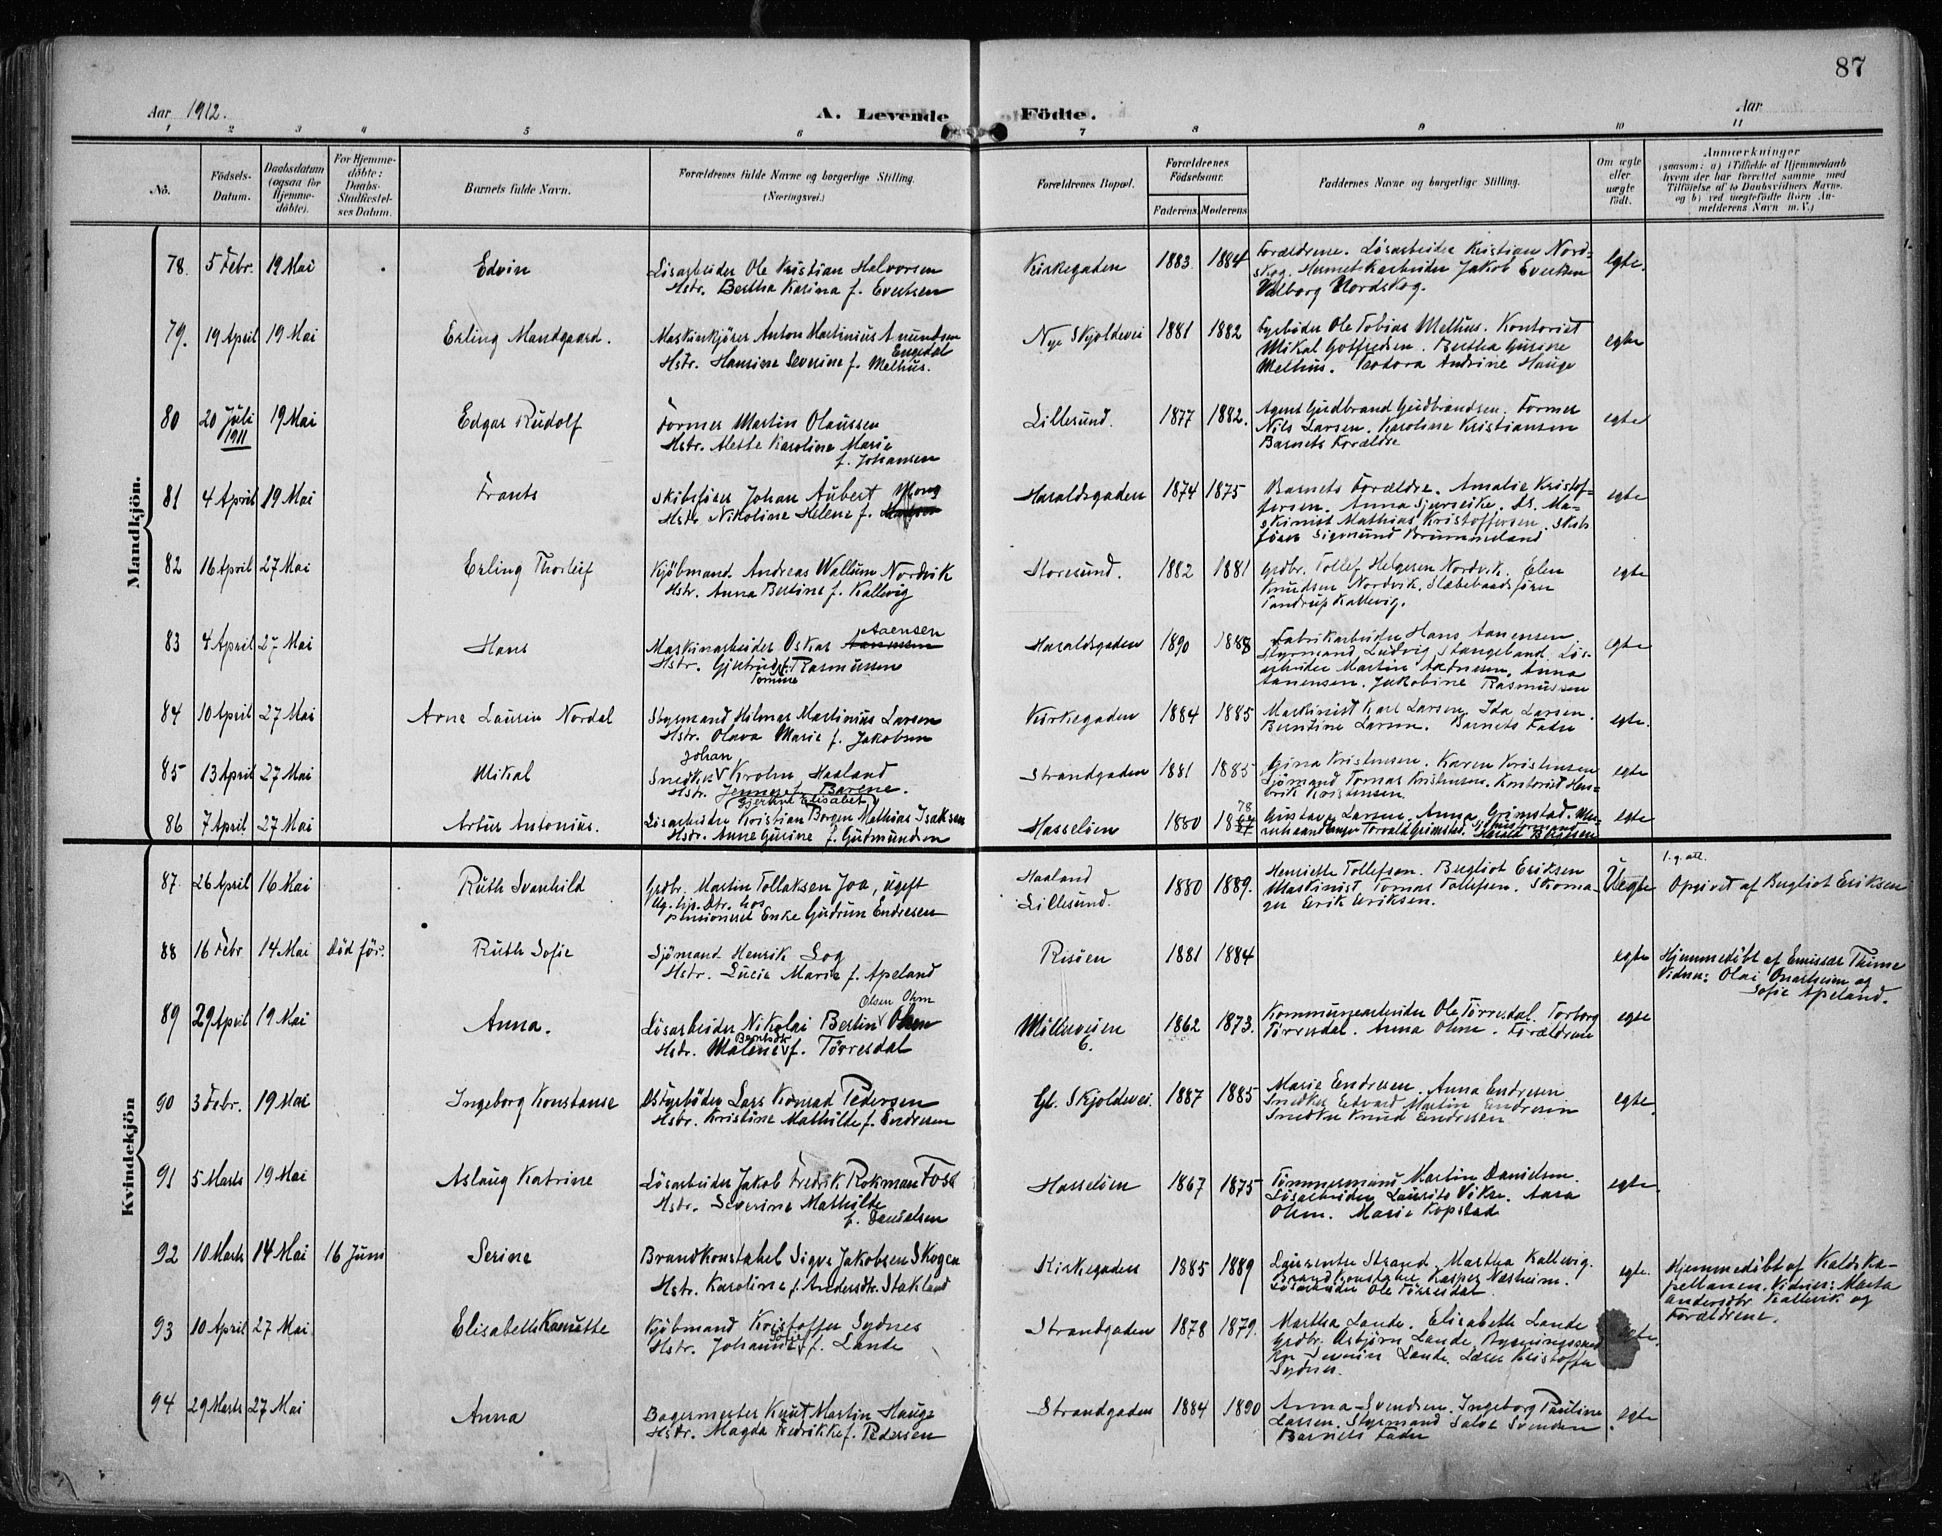 87
Aar 1912.
A. Levende Födte.
Aar
1 2 3 4 5 6 7 8 9 10 11
No.
Födsels-
Datum.
Daabsdatum
(ogsaa for
Hjemme-
döbte).
For Hjemme-
döbte:
Daabs-
Stadfæstel-
ses Datum.
Barnets fulde Navn.
Forældrenes fulde Navne og borgerlige Stilling.
(Næringsvei.)
Forældrenes Bopæl.
Forældrenes
Födselsaar.
Faderens. Moderens
Faddernes Navne og borgerlige Stilling.
Om ægte
eller
uægte
födt.
Anmærkninger
(saasom: a) i Tilfælde af Hjemmedaab
hvem der har forrettet samme, med
Tilföielse af to Daabsvidners Navne,
og b) ved uægtefödte Börn An-
melderens Navn m. V.)
Mandkjön.
78. 5 Febr. 19 Mai Edvin
Lösarbeider Ole Kristian Halvorsen
Hstr. Bertha Karina f. Evertsen
Kirkegaden 1883 1884
Forældrene. Lösarbeider Kristian Nord-
skog. Hermetikarbeider Jakob Evertsen
Valborg Nordskog.
egte.
79. 19 April 19 Mai Erling Mandgaard.
Maskinkjörer Anton Martinius Amundsen
Engedal
Hstr. Hansine Severine f. Melhus.
Nye Skjoldevei 1881 1882
Fyrböder Ole Tobias Melhus. Kontorist
Mikal Gotfredsen. Bertha Gurine
Melhus. Teodora Andrine Hauge
egte
80 20 Juli 19 Mai Edgar Rudolf
1911
Former Martin Olaussen
Hstr. Alette Karoline Marie
f. Johansen
Lillesund. 1877 1882.
Agent Gudbrand Gudbrandsen. Former
Nils Larsen. Karoline Kristiansen
Barnets Forældre
egte
81 4 April 19 Mai Frants
Skibsförer Johan Aubert
Hstr Nikoline Helene f.
Haraldsgaden 1874 1875
Barnets Forældre. Amalie Kristof-
fersen. Anna Sjurseike. Ma-
skinist Mathias Kristoffersen. Skibs
förer Sigmund Brummeland
egte
82 16 April 27 Mai Erling Thorleif
Kjöbmand Andreas Wallum Nordvik
Hstr. Anna Bertine f. Kallevig
Storesund. 1882 1881
Grdbr. Tollef Helgesen Nordvik. Elen
Knudsen Nordvik. Slæbebaadsförer
Tandrup Kallevig.
egte
83 4 April 27 Mai Hans
Aaensen
Maskinarbeider Oskar
Hstr. Gjertrud f. Rasmussen
Tomine
Haraldsgaden 1890 1888
Fabrikarbeider Hans Aanensen.
Styrmand Ludvig Stangeland. Lös-
arbeider Martin Andresen. Anna
Aanensen. Jakobine Rasmussen
egte
84 10 April 27 Mai Arne Laurin Nordal
Styrmand Hilmar Martinius Larsen
Hstr. Olava Marie f. Jakobsen
Kirkegaden 1884 1885
Maskinist Karl Larsen. Ida Larsen.
Berntine Larsen. Barnets Fader
egte.
85 13 April 27 Mai Mikal
Johan
Snedker Krohn Haaland
Hstr. f. Barene.
Gjertine Elisabet
Strandgaden 1881 1885
Gina Kristensen. Karen Kristensen
Sjömand Tomas Kristensen. Kontorist Hen-
drik Kristensen
egte
86 7 April 27 Mai Artur Antonius.
Lösarbeider Kristian Borgen Mathias Isaksen
Hstr. Anne Gurine f. Gudmundsen
Hasselöen 1880 1878
Gustava Larsen. Anna Grimstad.
Torvald Grimstad.
egte
Kvindekjön
87. 26 April 16 Mai Ruth Svanhild
Grdbr. Martin Tollaksen Joa, ugift
Ug. tjp. Dtr. hos
pensioneret Enke Gudrun Endresen
Haaland
Lillesund. 1880 1889.
Henriette Tollefsen. Bergliot Eriksen
Maskinist Tomas Tollefsen. Skoma-
ger Eerik Eriksen.
Uegte
1. g. att.
Opgivet af Bergliot Eriksen
88 16 Febr 14 Mai Död för. Ruth Sofie
Sjömand Henrik Log
Hstr. Lucie Marie f. Apeland
Risöen 1881 1884
egte
Hjemmedöbt af Emissær Thime
Vidner: Olai Onarheim og
Sofie Apeland.
89 29 April 19 Mai Anna.
Olsen Ohm
Lösarbeider Nikolai Bertin
Hstr. Malene f. Törresdal
Berntsdtr
Mölleveien 6. 1862 1873.
Kommunearbeider Ole Törresdal. Torborg
Törresdal. Anna Ohm. Forældrene
egte
90 3 Febr. 19 Mai Ingeborg Konstanse
Fyrböder Lars Konrad Pedersen
Hstr. Kristine Mathilde f. Endresen
Gl. Skjoldevei. 1887 1885
Marie Endresen. Anna Endresen
Snedker Edvard Martin Endresen
Snedker Knud Endresen
egte.
91 5 Marts 19 Mai Aslaug Katrine
Lösarbeider Jakob Fredrik Rokman Foss
Hstr. Severine Mathilde
f. Danielsen
Hasselöen 1867 1875
Tömmermand Martin Danielsen.
Lösarbeider Laurits Vikse. Aasa
Ohm. Marie Kopstad
egte.
92 10 Marts 14 Mai 16 Juni Serine
Brandkonstabel Sigve Jakobsen Skogen
Hstr. Karoline f. Andersdtr. Stakland
Kirkegaden 1885 1889
Laurentse Strand. Martha Kallevig.
Brandkonstabel Kasper Næsheim.
Lösarbeider Ole Törresdal.
egte.
Hjemmedöbt af Kaldska-
pellanen. Vidner: Marta
Andersdtr Kallevik og
Forældrene.
93 10 April 27 Mai Elisabeth Kanutte
Kjöbmand Kristoffer Sydnes
Hstr. Johanne Sofie f. Lande
Strandgaden 1878 1879.
Martha Lande. Elisabeth Lande
Grdbr. Asbjörn Lande. Bygningssned
ker Severin Lande. Lærer Kristoffer
Sydnes.
egte.
94 29 Marts 27 Mai Anna
Bagermester Knut Martin Hauge
Hstr. Magda Fredrikke f. Pedersen
Strandgaden 1884 1890
Anna Svendsen. Ingeborg Pauline
Larsen. Styrmand Salve Svendsen
Barnets Fader
egte